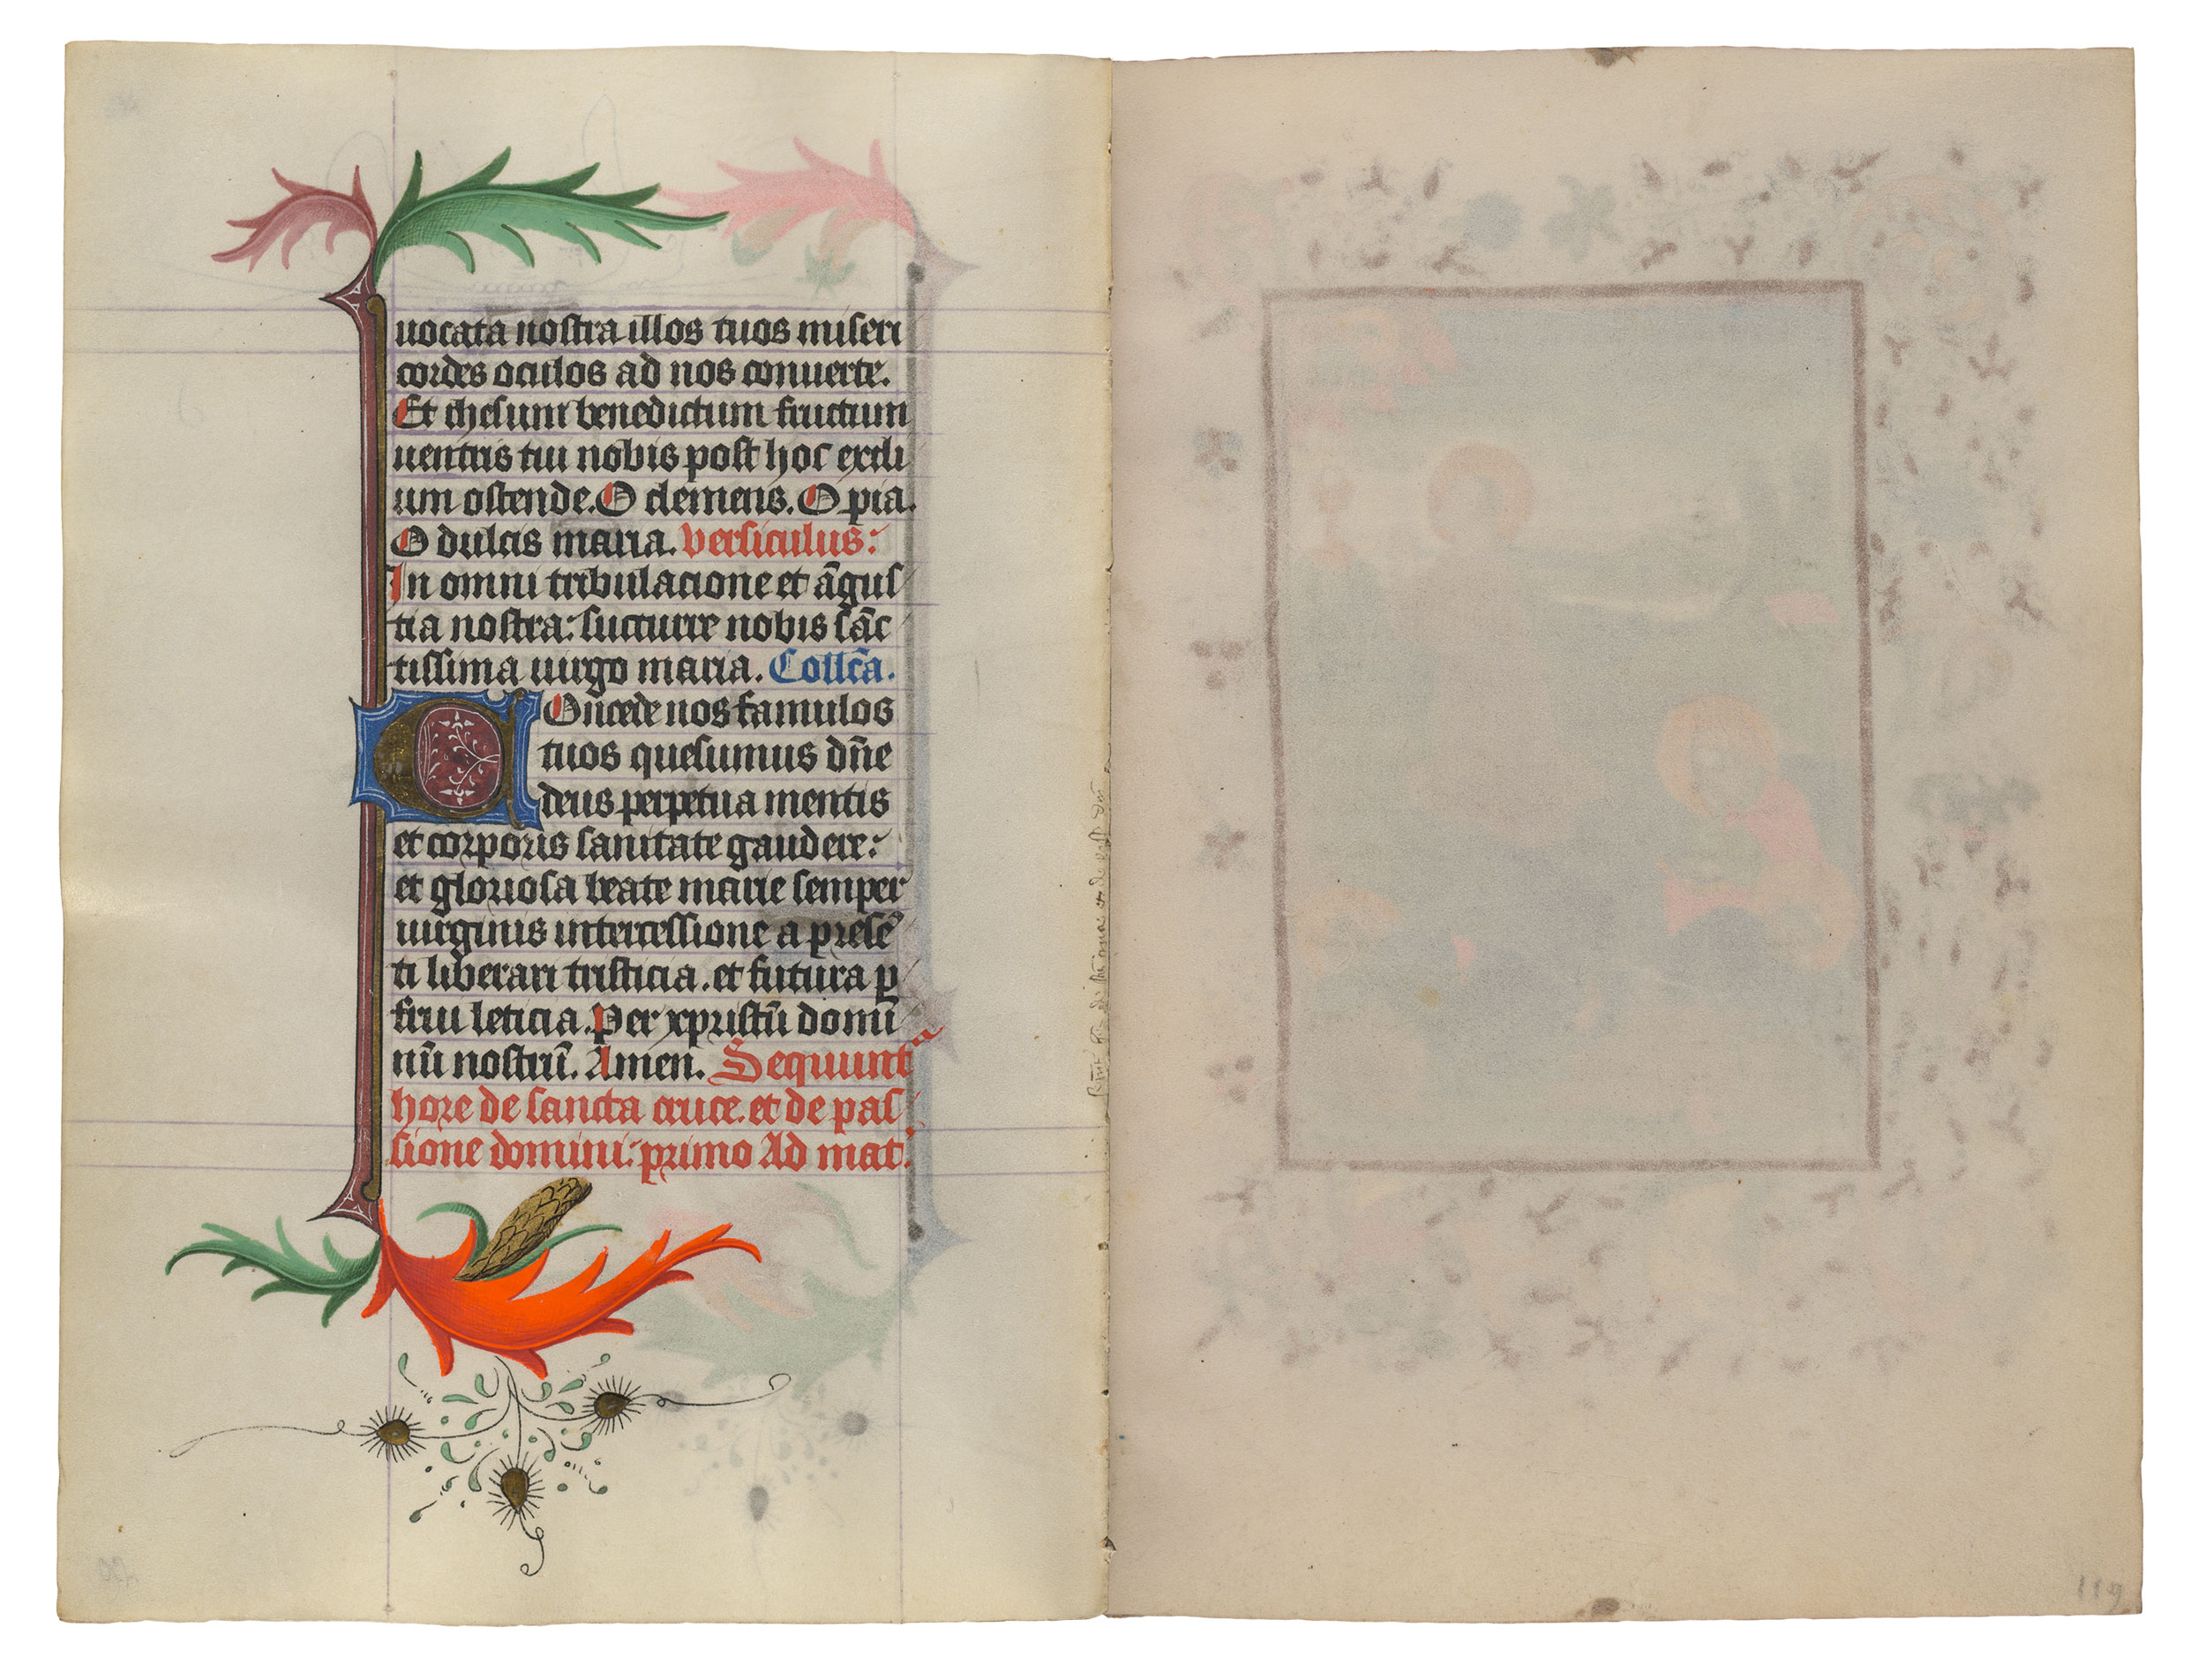 uocata nostra illos tuos miseri
cordes oculos ad nos conuerte.
Et ihesum benedictum fructum
uentris tui nobis post hoc exili
um ostende. O clemens. O pia.
O dulcis maria. versiculus:
In omni tribulacione et āgus
tia nostra: succurre nobis sāc
tissima uirgo maria. Collc̄a.
Concede nos famulos
tuos quesumus dn̄e
deus perpetua mentis
et corporis sanitate gaudere:
et gloriosa beate marie semper
uirginis intercessione a presē
ti liberari tristicia. et futura ꝑ
frui leticia. Per xpristū domi
nū nostrū. Amen. Sequunt
hore de sancta cruce. et de pas
sione domini: primo Ad mat.
119